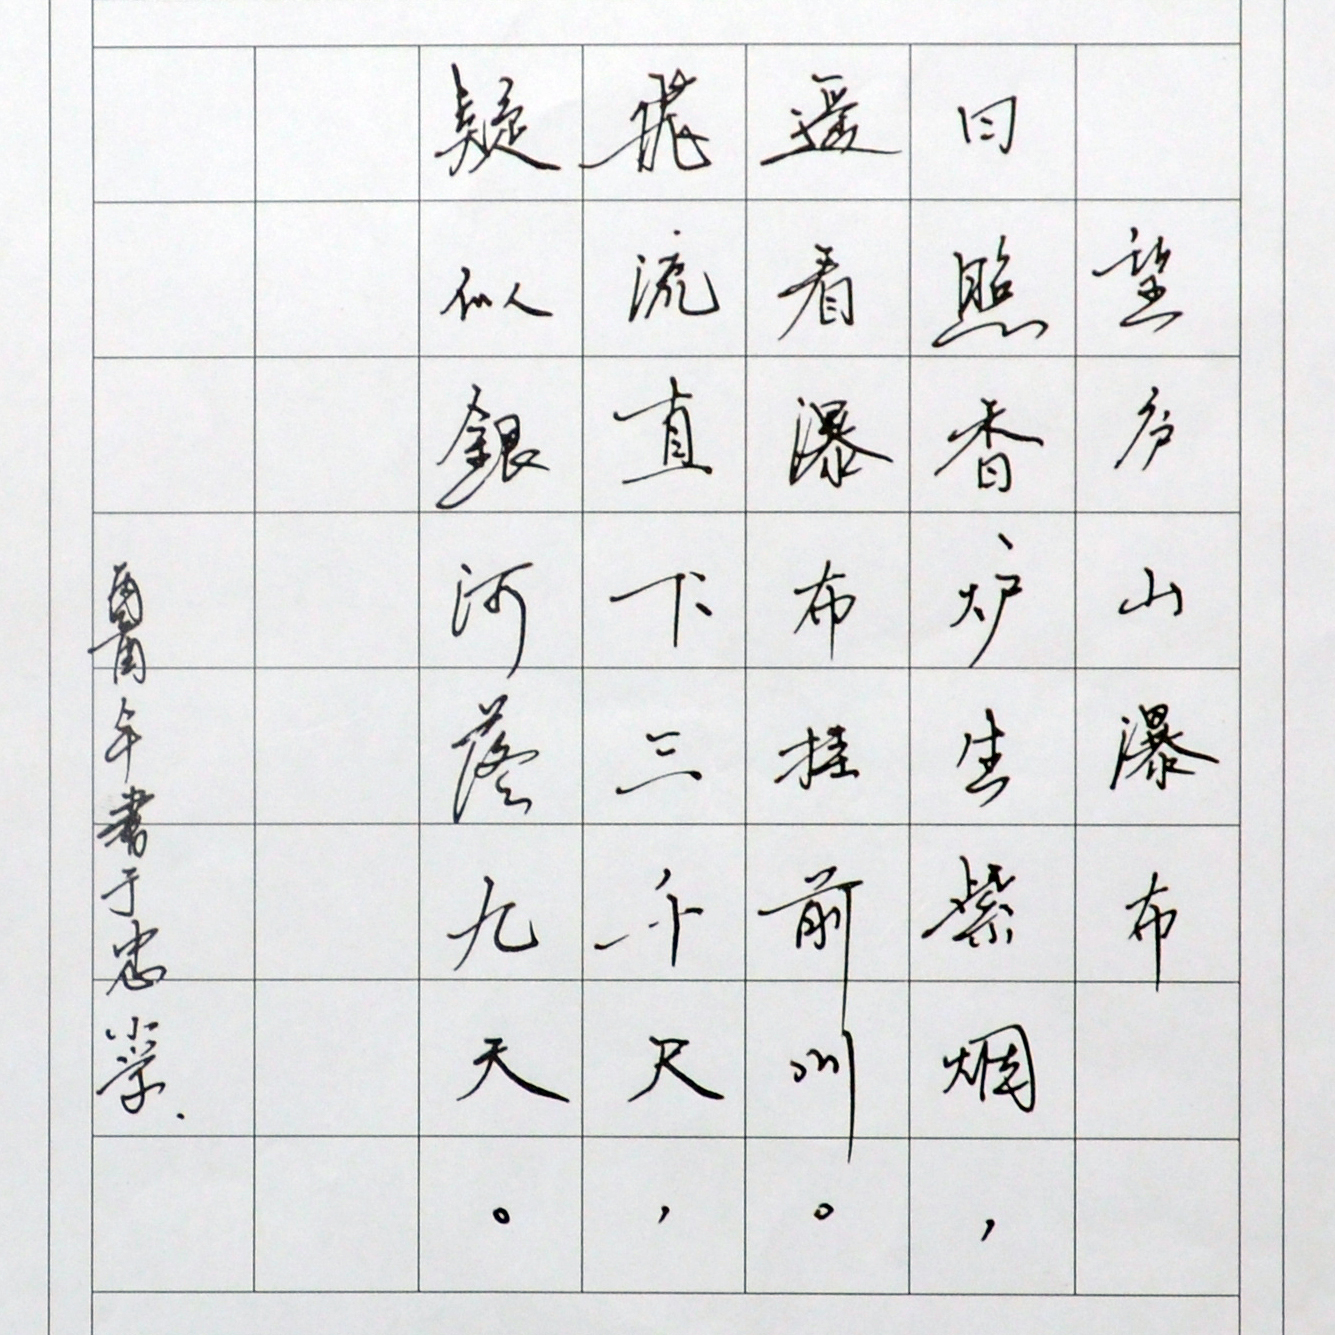 望庐山瀑布
日照香炉生紫烟，
遥看瀑布挂前川。
飛流直下三千尺，
疑似銀河落九天。
午書于忠小学.